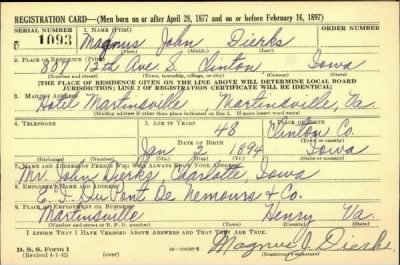 REGISTRATION CARD—(Men born on or after April 28, 1877 and on or before February 16, 1897)
SERIAL NUMBER 1. NAME (Print) ORDER NUMBER
1093 Magnus John Dierks
(First) (Middle) (Last)
2. PLACE OF RESIDENCE (Print)
807 12th Ave S. Clinton, Iowa
(Number and street) (Town, township, village, or city) (County) (State)
[THE PLACE OF RESIDENCE GIVEN ON THE LINE ABOVE WILL DETERMINE LOCAL BOARD
JURISDICTION; LINE 2 OF REGISTRATION CERTIFICATE WILL BE IDENTICAL]
3. MAILING ADDRESS
Hotel Martinsville Martinsville, Va.
[Mailing address if other than place indicated on line 2. If same insert word same]
4. TELEPHONE 5. AGE IN YEARS 6. PLACE OF BIRTH
48 Clinton Co.
DATE OF BIRTH (Town or county)
Jan 2 1894 Iowa
(Exchange) (Number) (Mo.) (Day) (Yr.) (State or country)
7. NAME AND ADDRESS OF PERSON WHO WILL ALWAYS KNOW YOUR ADDRESS
Mr. John Dierks, Charlotte, Iowa
8. EMPLOYER'S NAME AND ADDRESS
E. I. DuPont De Nemours & Co.
9. PLACE OF EMPLOYMENT OR BUSINESS
Martinsville Henry Va.
(Number and street or R. F. D. number) (Town) (County) (State)
I AFFIRM THAT I HAVE VERIFIED ABOVE ANSWERS AND THAT THEY ARE TRUE.
D. S. S. Form 1
(Revised 4-1-42) (over)
Magnus J. Dierks
(Registrant's signature)